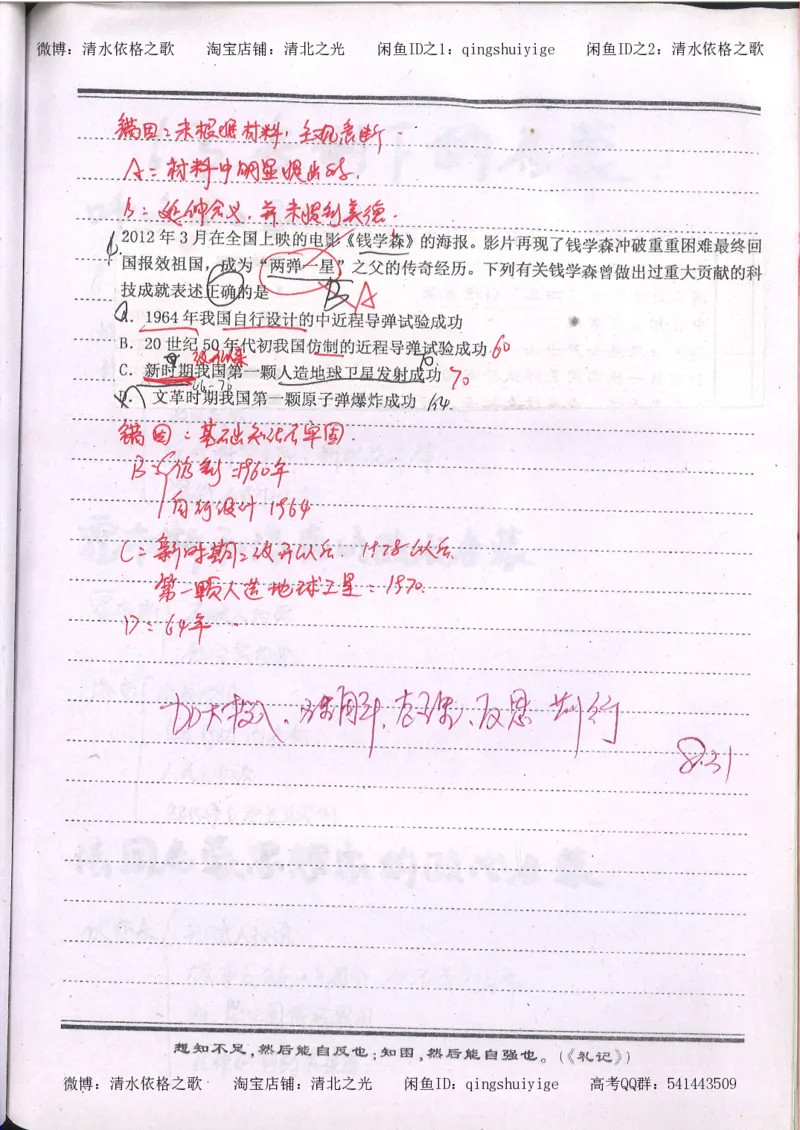 微博：清水依格之歌 淘宝店铺：清北之光 闲鱼ID之1：qingshuiyige 闲鱼ID之2：清水依格之歌
错因：未根据材料，主观意断.
A：材料中明显提出的.
B：延伸含义，并未提到美德.
2012 年 3 月在全国上映的电影《钱学森》的海报。影片再现了钱学森冲破重重困难最终回
国报效祖国，成为“两弹一星”之父的传奇经历。下列有关钱学森曾做出过重大贡献的科
技成就表述正确的是 B A
A. 1964 年我国自行设计的中近程导弹试验成功
B. 20 世纪 50 年代初我国仿制的近程导弹试验成功 60
改开以来 70.
C. 新时期我国第一颗人造地球卫星发射成功 70
66-76
D. 文革时期我国第一颗原子弹爆炸成功 64.
错因：基础知识不牢固.
B：仿制：1960年
自行设计 1964
C：新时期：改开以后 1978以后
第一颗人造地球卫星：1970.
D：64年
加大投入、反思
8.31
知不足，然后能自反也；知困，然后能自强也。（《礼记》）
微博：清水依格之歌 淘宝店铺：清北之光 闲鱼ID：qingshuiyige 高考QQ群：541443509